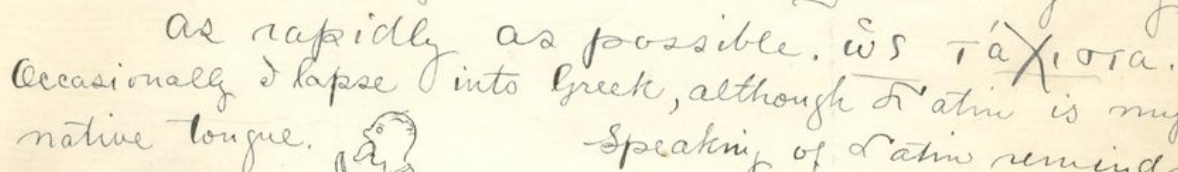 as rapidly as possible. ὡς τάχιστα.
Occasionally I lapse into Greek, although Latin is my
native tongue. Speaking of Latin remind